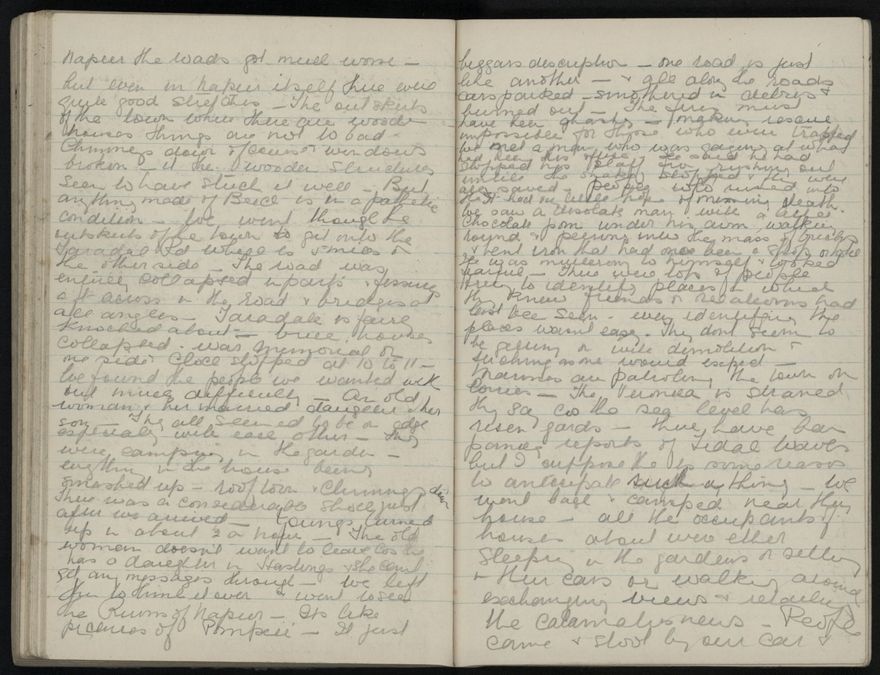 Napier the roads got much worse –
but even in Napier itself there were
quite good stretches – The outskirts
of the town where there are wooden
houses things are not to bad –
Chimneys down of course & windows
broken – it the wooden structures
seem to have stuck it well – But
anything made of Brick is in a pathetic
condition – We went though the
outskirts of the town to get onto the
Taradale Rd which is 5 miles
the other side – The road was
entirely collapsed in parts &
across in the road & bridges at
all angles – Taradale is fairly
knocked about – brick houses
collapsed. war memorial on
one side Clock stopped at 10 to 11 –
We found the people we wanted with
out much difficulty – An old
woman & her married daughter & her
son – They all seemed to be on edge
especially with each other – They
were camping in the garden –
everything in the house being
smashed up – roof torn & chimneys down
There was a considerable shock just
after we arrived – Youngs turned
up in about ½ a hour – The old
woman doesn't want to leave cos she
has a daughter in Hastings & she can't
get any messages through – We left
them to think it over & went to see
the Ruins of Napier – Its like
pictures of Pompeii – It just
beggars description – one road is just
like another – & all along the roads
cars parked – smothered in debris &
burned out – The fires must
have been ghastly – making rescue
impossible for those who were trapped
We met a man who was gazing at what
had been his office he said he had
stopped his staff from rushing out
until the shaking stopped & they were
all saved – People who rushed into
the st had little hope of missing death.
We saw a desolate man with a
chocolate under his arm walking
round & peering into the mass of bricks
& bent iron that had once been a shop or
He was muttering to himself & looked
fearful – There were lots of people
trying to identify places in which
they knew friends & relations had
last been seen. even identifying the
places wasn't easy. They dont seem to
be getting on with demolition &
such as one would expect –
Marines are patroling the town in
lorries – The Veronica is stranded
they say cos the sea level has
risen yards – there have been
panic reports of Tidal Waves
but I suppose there is some reason
to anticipate such a thing – We
went back & camped near their
house – all the occupants of
houses about were either
sleeping in the gardens or sitting
in their cars or walking around
exchanging views & retailing
the calamities news – People
came & stood by our car &